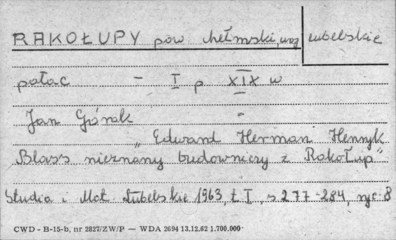 RAKOŁUPY pow chełmski, woj lubelskie
pałac - I p XIX w
Jan Górak -
"Edward Herman Henryk
Blass nieznany budowniczy z Rakołup"
Studia i Mat. Lubelskie 1963, t I, s 277-284, ryc 8
CWD - B-15-b, nr 2827/ZW/P — WDA 2694 13.12.62 1.700.000